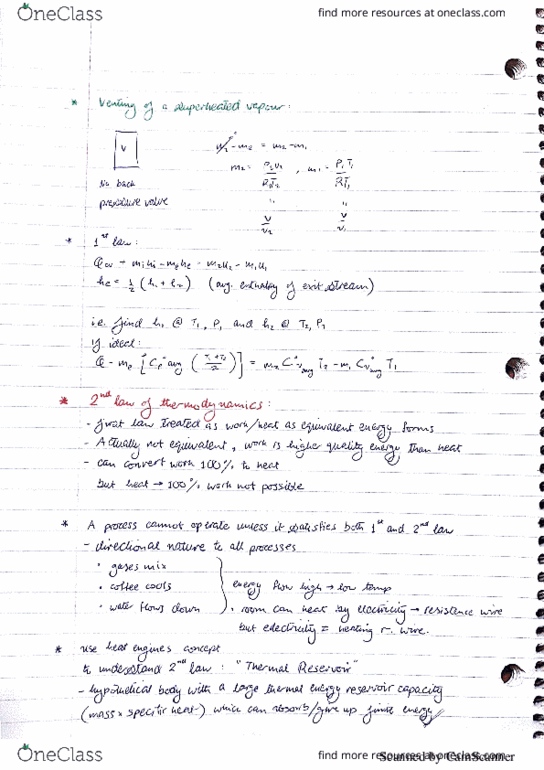 OneClass
find more resources at oneclass.com
* Venting of a superheated vapour:
V
m₁° - me = m₂ - m₁
m₂ = P₂V₂ / R₂T₂ , m₁ = P₁T₁ / RT₁
" "
V/v₂ V/v₁
pressure valve
* 1st law:
Qcv + mihi - mehe = m₂u₂ - m₁u₁
he = 1/2 (h₁ + h₂) (avg. enthalpy of exit stream)
i.e. find h₁ @ T₁, P₁ and h₂ @ T₂, P₂
if ideal:
Q - me [Cp° avg (T₁+T₂ / 2)] = m₂ C°v avg T₂ - m₁ C°v avg T₁
* 2nd law of thermodynamics:
- first law treated as work/heat as equivalent energy forms
- Actually not equivalent, work is higher quality energy than heat
- can convert work 100% to heat
but heat → 100% work not possible
* A process cannot operate unless it satisfies both 1st and 2nd law
- directional nature to all processes
• gases mix
• coffee cools
• water flows down
energy flow high → low temp
• room can heat by electricity → resistence wire
but electricity = heating r. wire.
* use heat engines concept
to understand 2nd law : "Thermal Reservoir"
- hypothetical body with a large thermal energy reservoir capacity
(mass x specific heat) which can absorb/give up finite energy
OneClass
find more resources at oneclass.com
Scanned by CamScanner